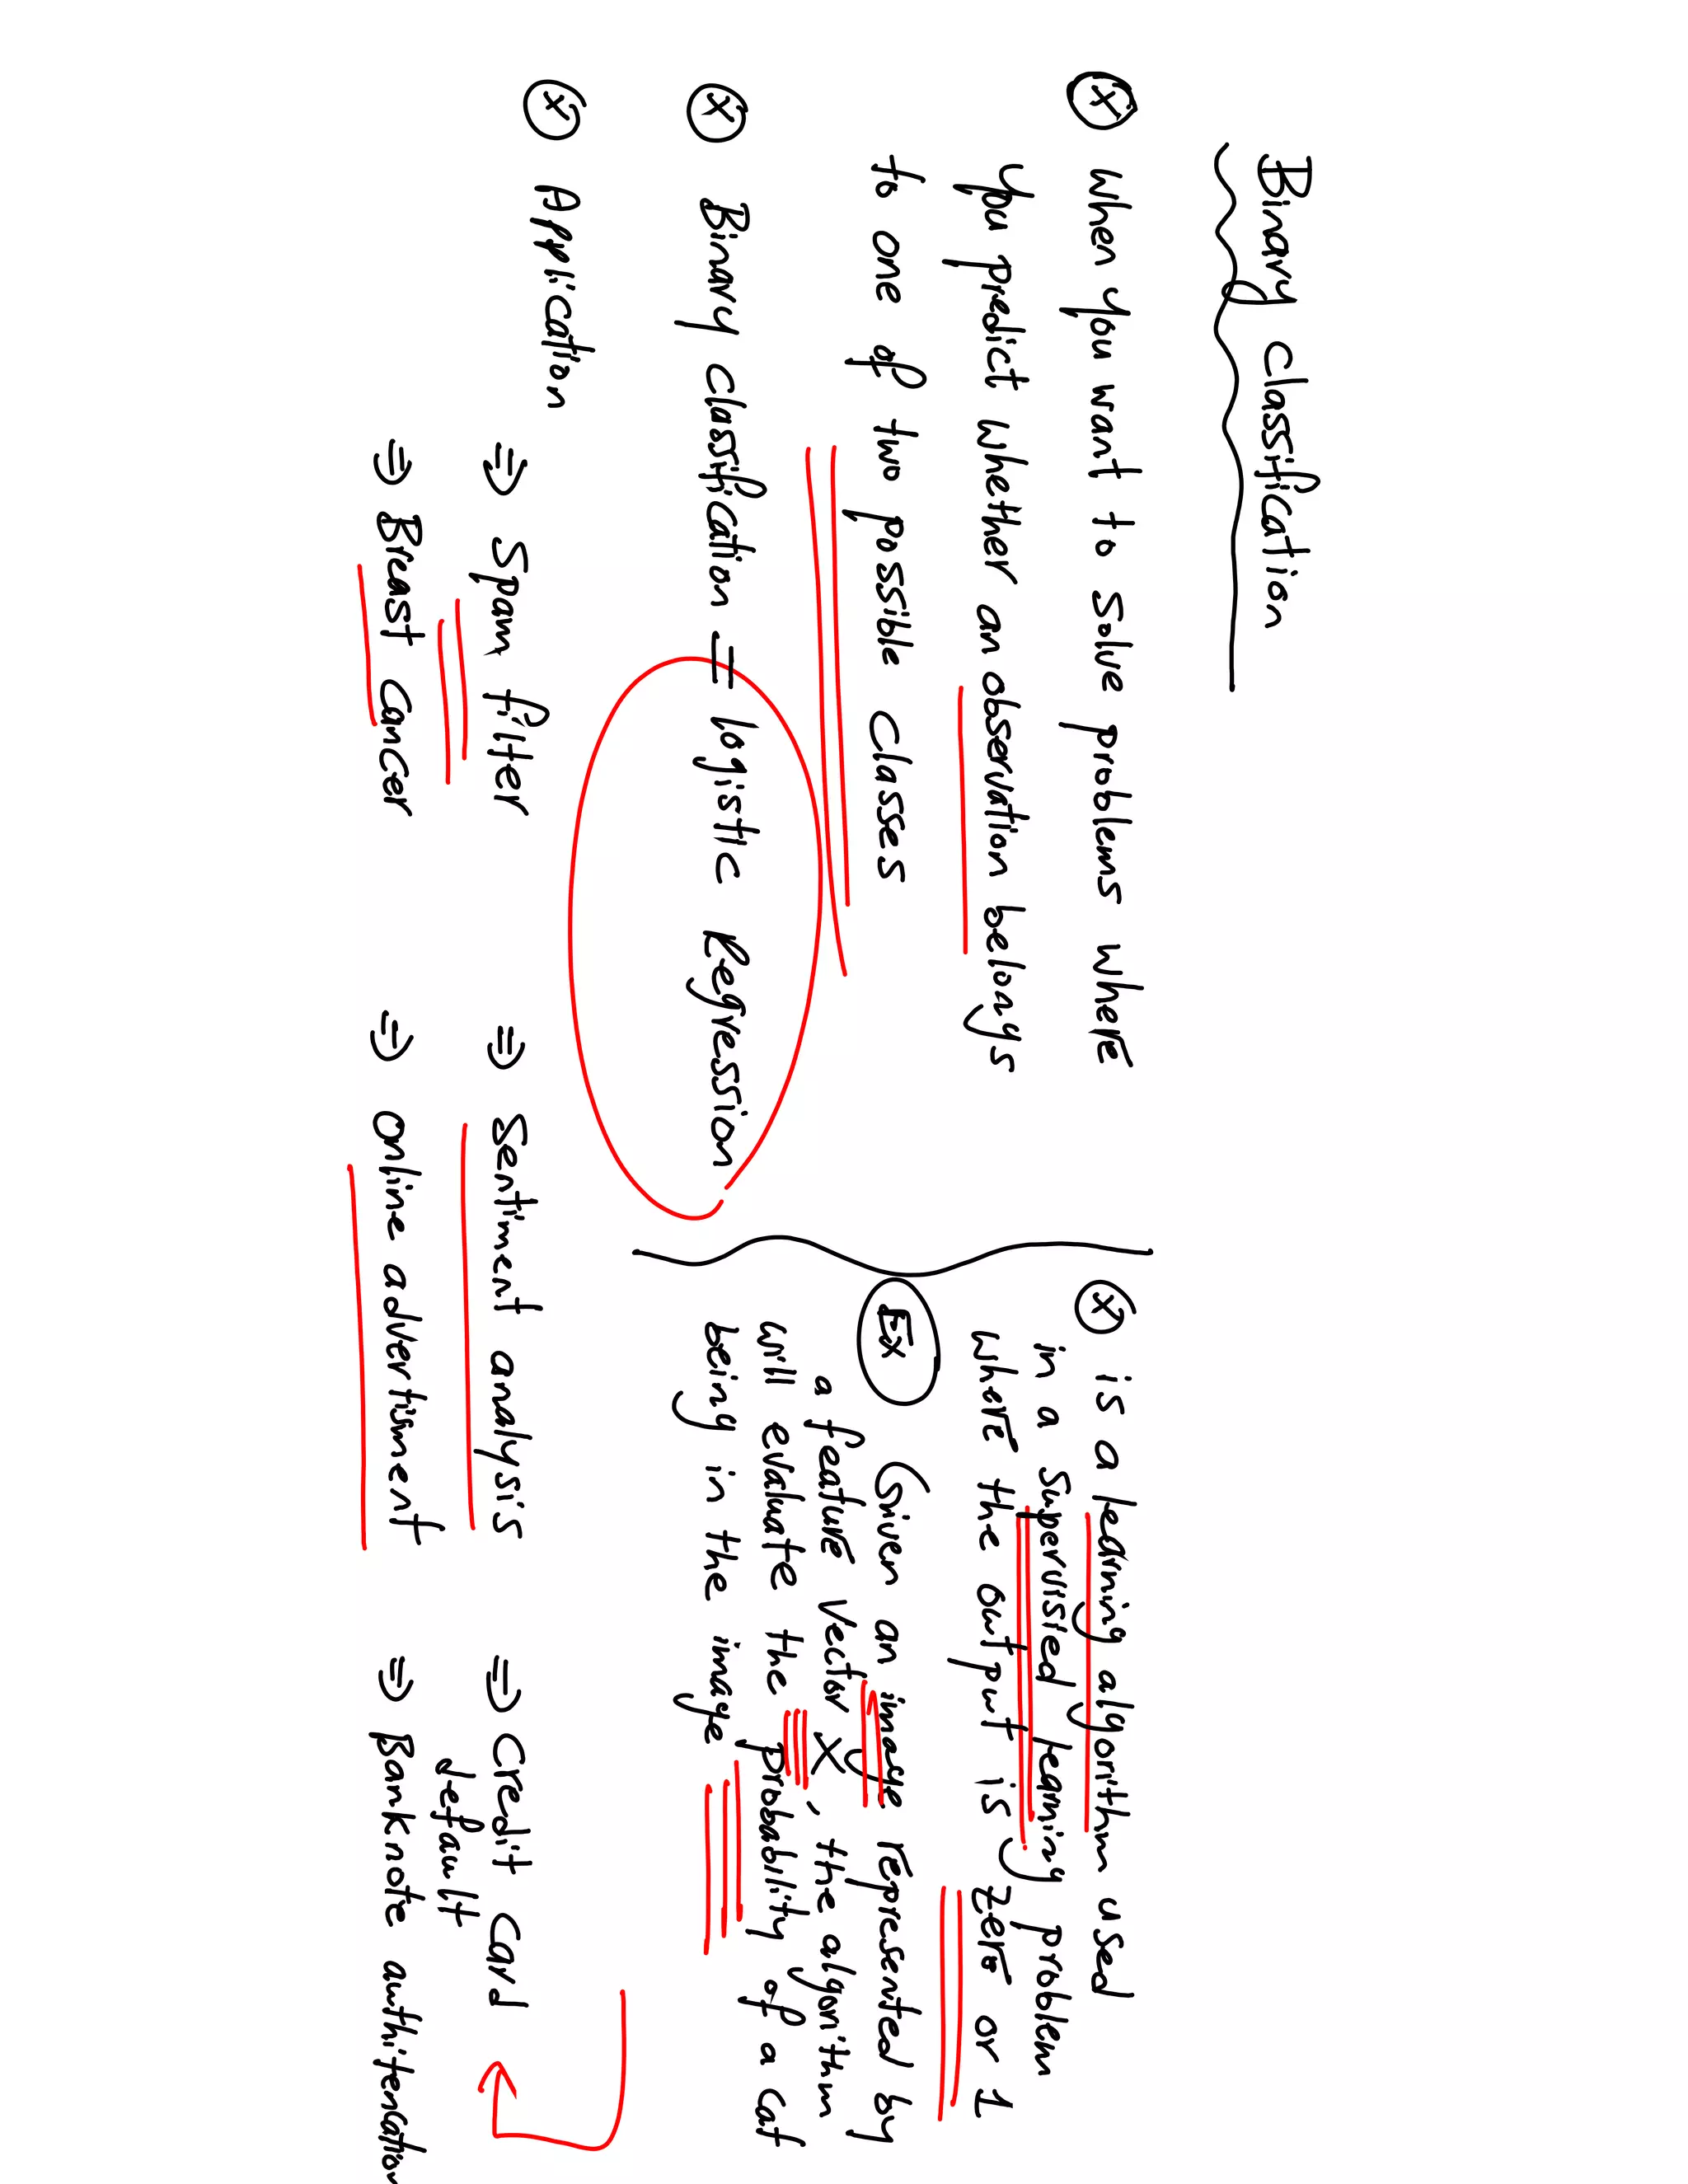 Binary Classification
ⓧ When you want to solve problems where
you predict whether an observation belongs
to one of two possible classes
ⓧ Binary Classification = logistic Regression
ⓧ is a learning algorithm used
in a Supervisied learning problem
where the output is zero or 1
Ex Given an image represented by
a feature vector X, the algorithm
will evaluate the probability of a cat
being in the image
ⓧ Application
⇒ Spam filter ⇒ Sentiment analysis ⇒ Credit Card
default
⇒ Breast Cancer ⇒ online advertisment ⇒ Banknote authitencation